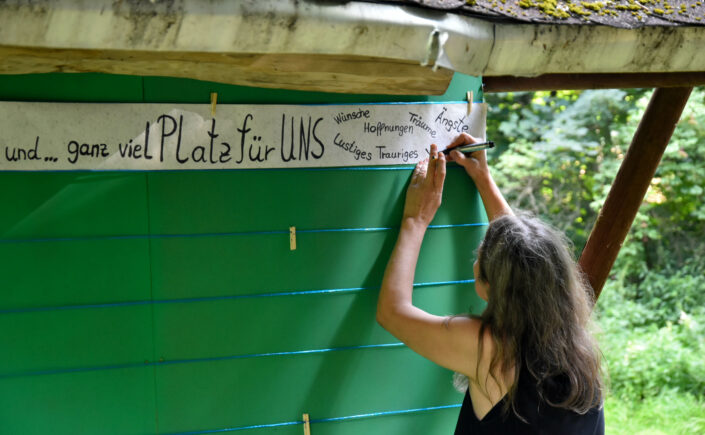 und... ganz viel Platz für UNS
Wünsche Träume Ängste
Hoffnungen
Lustiges Trauriges